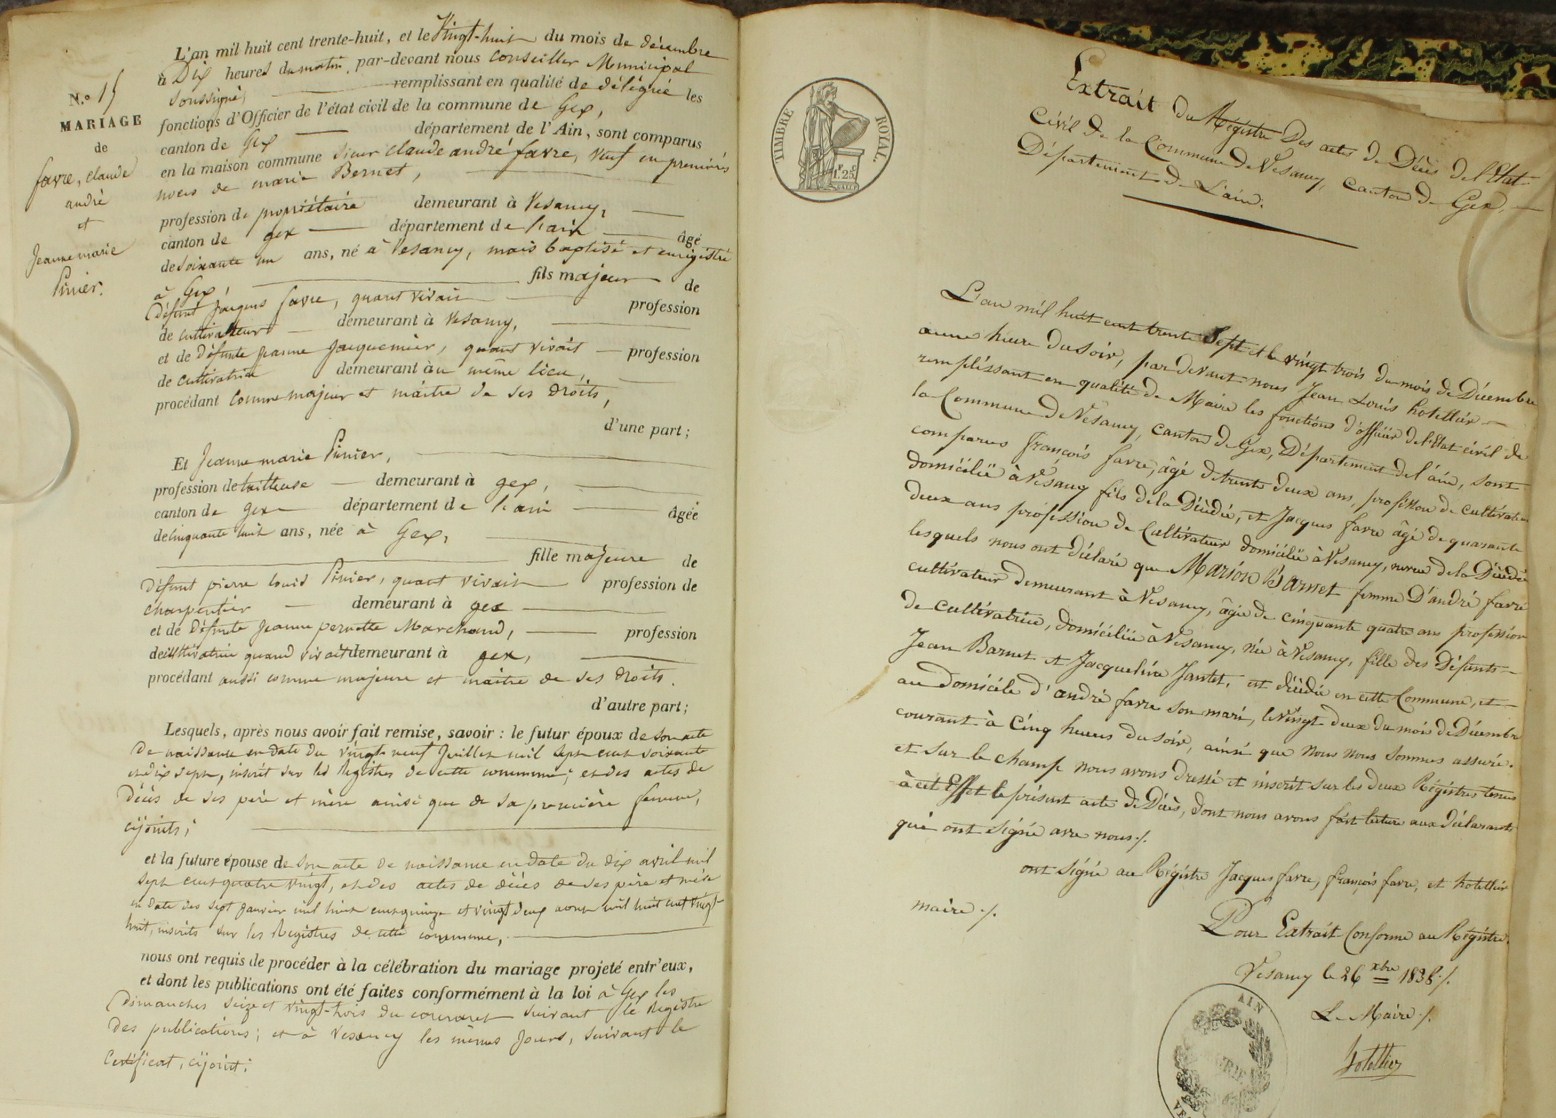 N.º 15
MARIAGE
de
favre, claude
andré
et
Jeanne marie
Pinier.
L'an mil huit cent trente-huit, et le Vingt-huit du mois de décembre
à Dix heures du matin, par-devant nous Conseiller Municipal
soussigné, remplissant en qualité de délégué les
fonctions d'Officier de l'état civil de la commune de Gex,
canton de Gex département de l'Ain, sont comparus
en la maison commune sieur claude andré favre, veuf en premières
noces de marie Bernet,
profession de propriétaire demeurant à Vesancy,
canton de gex département de l'ain âgé
de soixante un ans, né à Vesancy, mais baptisé et enrégistré
à Gex, fils majeur de
défunt Jacques favre, quant vivait profession
de cultivateur demeurant à Vesancy,
et de défunte Jeanne Jacquemier, quant vivait profession
de cultivatrice demeurant au même lieu,
procédant comme majeur et maître de ses droits,
d'une part;
Et Jeanne marie Pinier,
profession de tailleuse demeurant à gex,
canton de gex département de l'ain âgée
de cinquante huit ans, née à Gex,
fille majeure de
défunt pierre louis Pinier, quant vivait profession de
charpentier demeurant à gex
et de défunte Jeanne pernette Marchand, profession
de cultivatrice quand vivait demeurant à gex,
procédant aussi comme majeure et maitre de ses droits.
d'autre part;
Lesquels, après nous avoir fait remise, savoir : le futur époux de son acte
de naissance en date du vingt neuf Juillet mil sept cent soixante
et dix sept, inscrit sur les Registres de cette commune; et des actes de
décès de ses père et mère ainsi que de sa première femme,
cijoints;
et la future épouse de son acte de naissance en date du dix avril mil
sept cent quatre vingt, et des actes de décès de ses père et mère
en date des sept Janvier mil huit cent quinze et vingt deux aout mil huit cent vingt-
huit, inscrits sur les Registres de cette commune,
nous ont requis de procéder à la célébration du mariage projeté entr'eux,
et dont les publications ont été faites conformément à la loi à Gex les
Dimanches seize et vingt-trois du courant suivant le Registre
des publications; et à Vesancy les mêmes Jours, suivant le
Certificat, cijoint;
TIMBRE ROYAL.
1F 25
Extrait du Registre Des actes de Décès de l'Etat
Civil de la Commune de Vésancy, Canton de Gex,
Département de L'ain.
L'an mil huit cent trente sept et le vingt trois du mois de Décembre
a une heure du soir, par devant nous Jean Louis hotellier
remplissant en qualité de Maire les fonctions d'officier de l'Etat civil de
la Commune de Vésancy, canton de Gex, Département de l'ain, sont
comparus françois favre, âgé de trente deux ans, profession de cultivateur
domicilié à Vésancy fils de la Décédée, et Jacques favre âgé de quarante
deux ans profession de Cultivateur domicilié à Vésancy, neveu de la Décédée
lesquels nous ont déclaré que Marion Barnet femme D'andré favre
cultivateur demeurant à Vésancy, âgée de cinquante quatre ans profession
de cultivatrice, domiciliée à Vésancy, née à Vésancy, fille des Défunts
Jean Barnet et Jacqueline Jantet, est décédée en cette Commune, et
au domicile d'andré favre son mari, le vingt deux du mois de Décembre
courant à Cinq heures du soir, ainsi que nous nous sommes assuré.
et sur le champ nous avons dressé et inscrit sur les deux Régistres tenus
à cet Effet le présent acte de Décès, dont nous avons fait lecture aux déclarants
qui ont signé avec nous./.
ont signé au Régistre Jacques favre, françois favre, et hotellier
maire./.
Pour Extrait Conforme au Régistre.
Vésancy le 26 xbre 1838./.
Le Maire./.
Hotellier
AIN